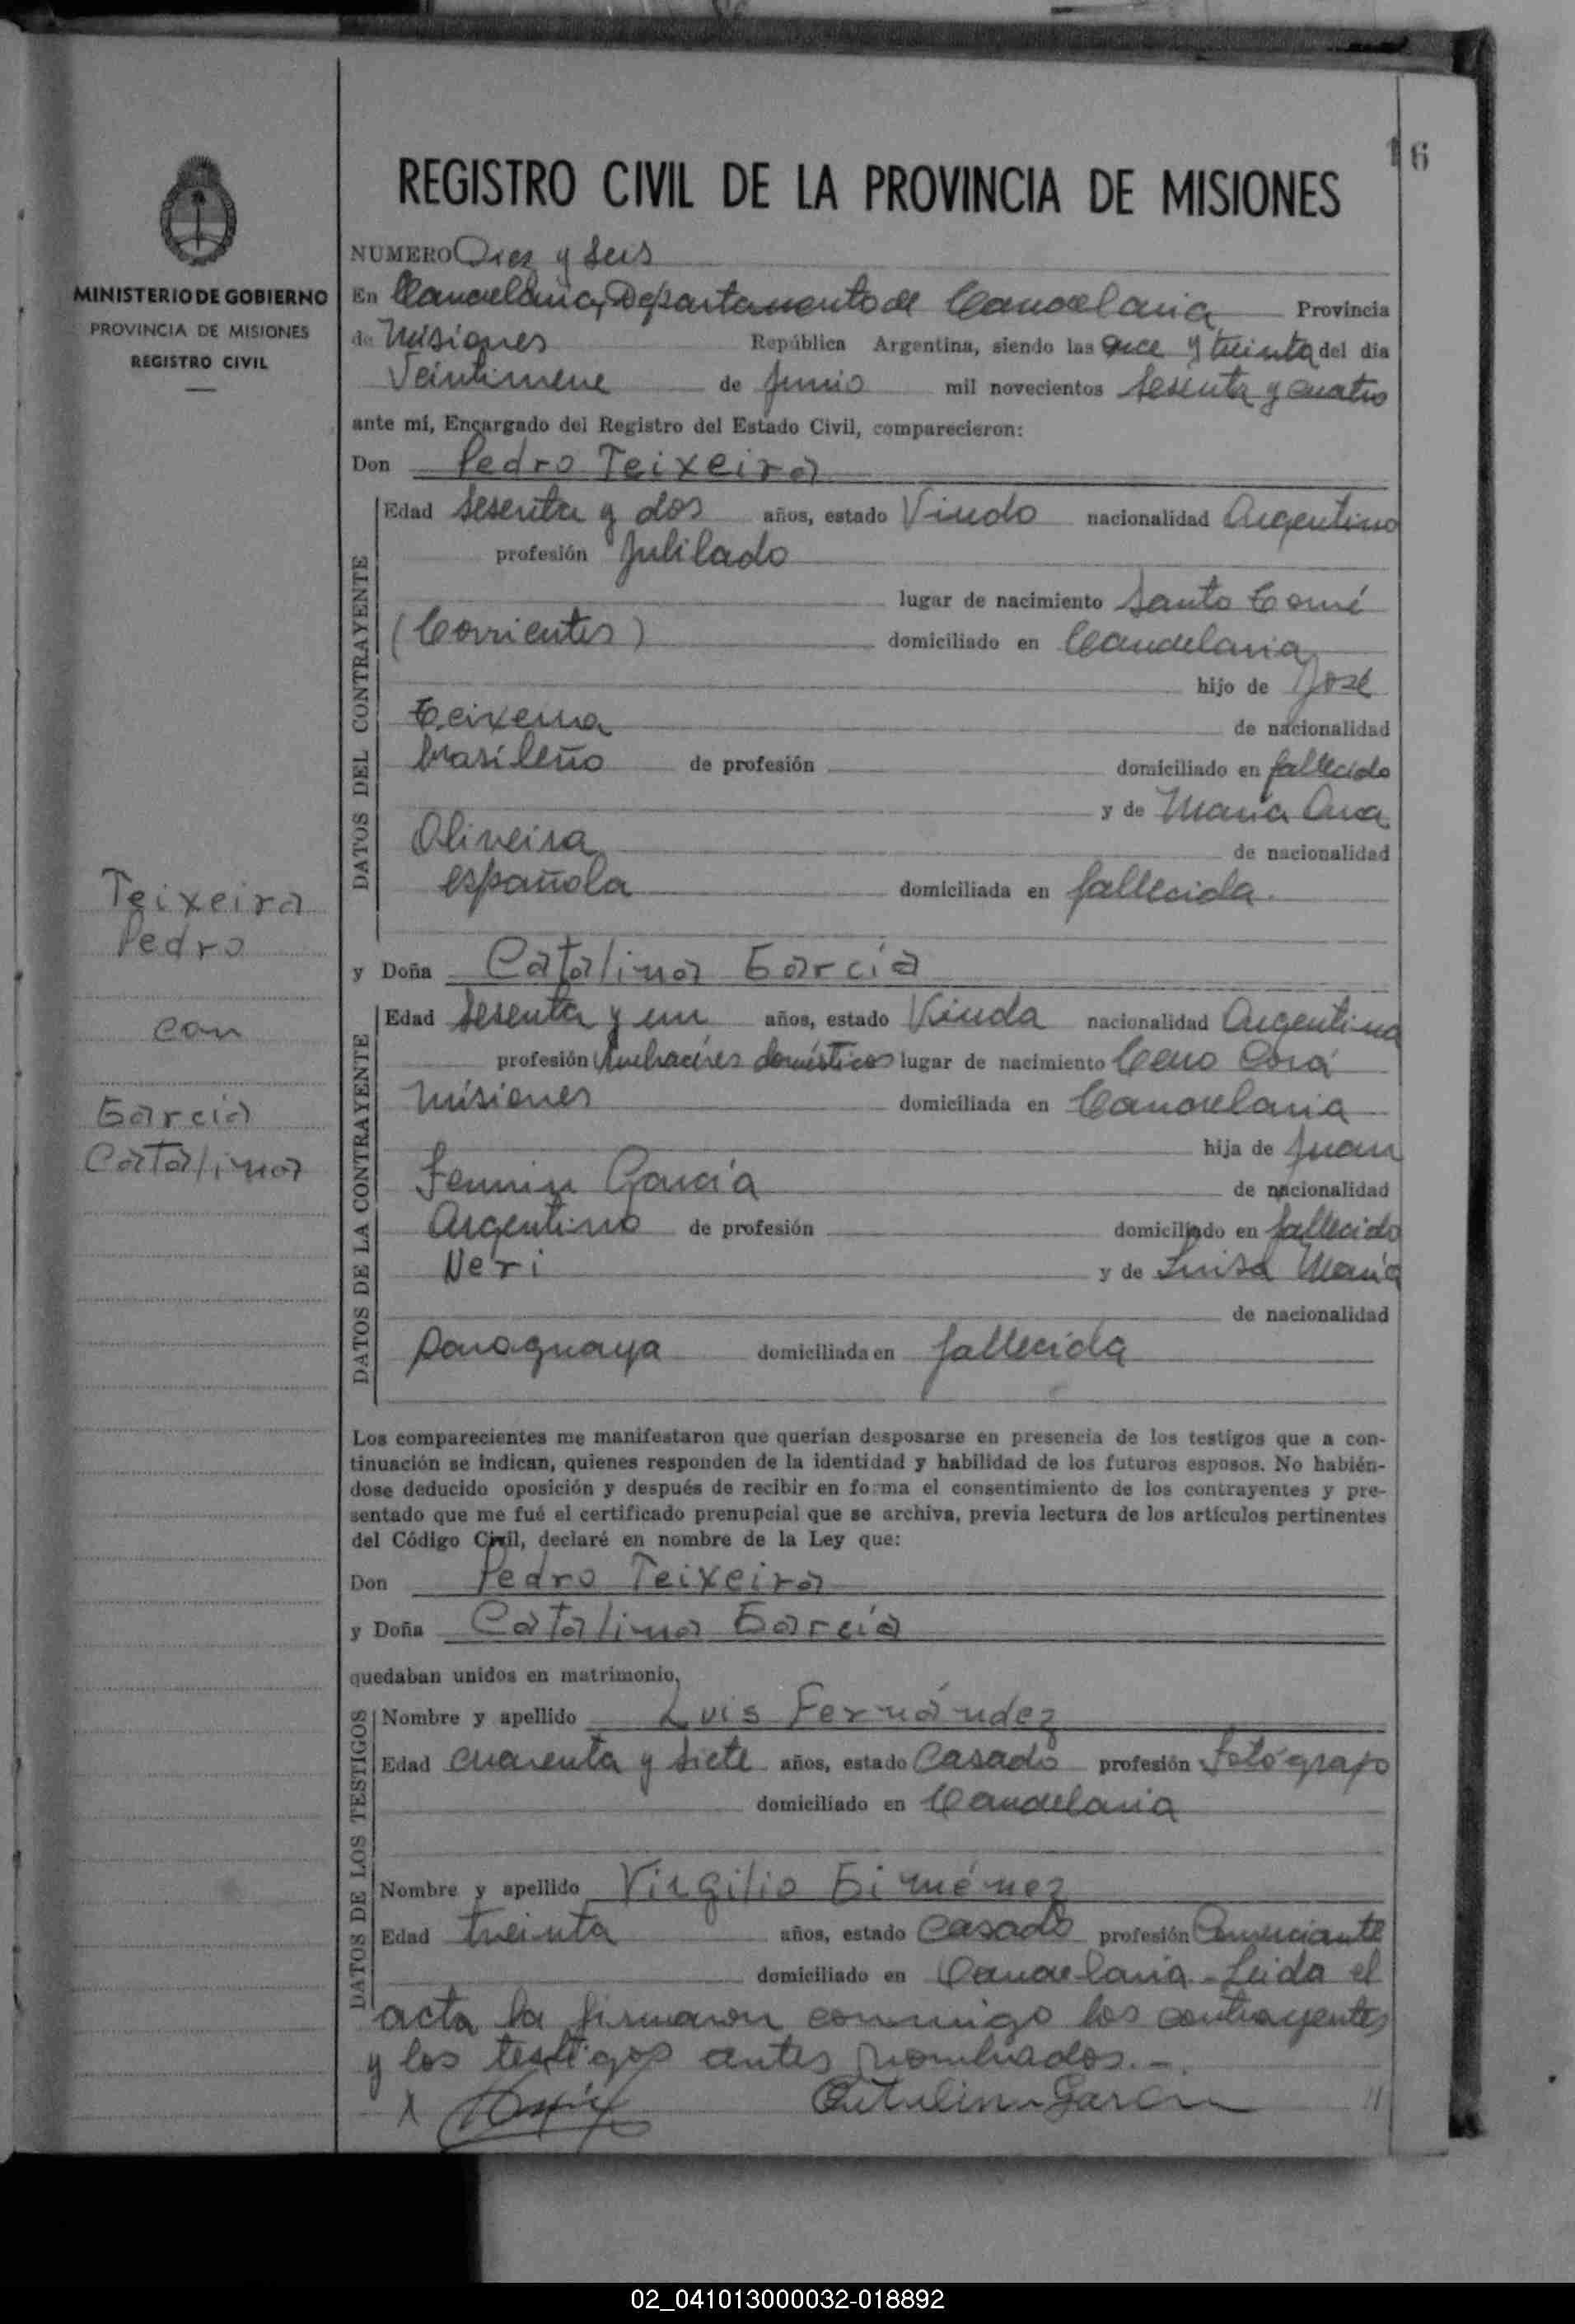 16
MINISTERIO DE GOBIERNO
PROVINCIA DE MISIONES
REGISTRO CIVIL
Teixeira
Pedro
con
García
Catalina
REGISTRO CIVIL DE LA PROVINCIA DE MISIONES
NUMERO Diez y seis
En Candelaria, Departamento de Candelaria Provincia
de Misiones República Argentina, siendo las once y treinta del dia
Veintinueve de Junio mil novecientos sesenta y cuatro
ante mí, Encargado del Registro del Estado Civil, comparecieron:
Don Pedro Teixeira
DATOS DEL CONTRAYENTE
Edad sesenta y dos años, estado Viudo nacionalidad Argentino
profesión Jubilado
lugar de nacimiento Santo Tomé
(Corrientes) domiciliado en Candelaria
hijo de José
Teixeira de nacionalidad
brasileño de profesión domiciliado en fallecido
y de María Ana
Oliveira de nacionalidad
española domiciliada en fallecida.
y Doña Catalina García
DATOS DE LA CONTRAYENTE
Edad sesenta y un años, estado Viuda nacionalidad Argentina
profesión Quehaceres domésticos lugar de nacimiento Cerro Corá
Misiones domiciliada en Candelaria
hija de Juan
Fermin García de nacionalidad
Argentino de profesión domiciliado en fallecido
Neri y de Luisa María
de nacionalidad
paraguaya domiciliada en fallecida
Los comparecientes me manifestaron que querían desposarse en presencia de los testigos que a con-
tinuación se indican, quienes responden de la identidad y habilidad de los futuros esposos. No habién-
dose deducido oposición y después de recibir en forma el consentimiento de los contrayentes y pre-
sentado que me fué el certificado prenupcial que se archiva, previa lectura de los artículos pertinentes
del Código Civil, declaré en nombre de la Ley que:
Don Pedro Teixeira
y Doña Catalina García
quedaban unidos en matrimonio,
DATOS DE LOS TESTIGOS
Nombre y apellido Luis Fernández
Edad cuarenta y siete años, estado Casado profesión fotógrafo
domiciliado en Candelaria
Nombre y apellido Virgilio Giménez
Edad treinta años, estado Casado profesión Comerciante
domiciliado en Candelaria. Leida el
acta la firmaron conmigo los contrayentes
y los testigos antes nombrados.-
Catalina Garcia //
02_041013000032-018892